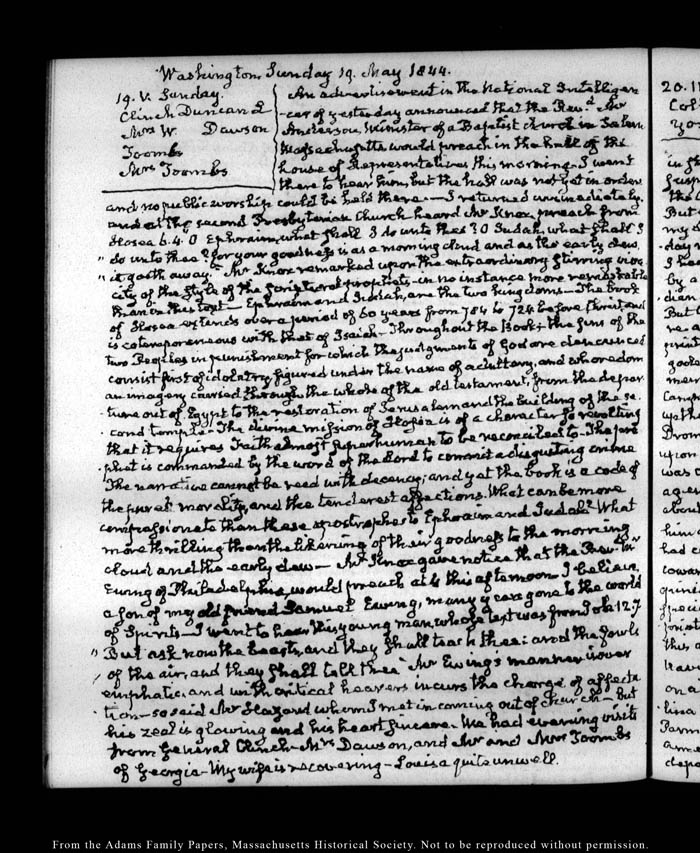 Washington, Sunday 19. May 1844.
19. V. Sunday.
Clinch Duncan L
Mrs W. Dawson
Toombs
Mrs Toombs
An advertisement in the National Intelligen
-cer of yesterday announced that the Revd. Mr
Anderson, Minister of a Baptist church in Salem
Massachusetts would preach in the hall of the
house of Representatives this morning. I went
there to hear him, but the hall was not yet in order
and no public worship could be held there.— I returned immediately,
and at the second Presbyterian Church heard Mr Knox preach from
Hosea 6.4. O Ephraim, what shall I do unto thee? O Judah, what shall I
" do unto thee? for your goodness is as a morning cloud and as the early dew,
" it goeth away." Mr Knox remarked upon the extraordinary stirring viva
city of the style of the scriptural prophets—in no instance more remarkable
than in this text— Ephraim and Judah, are the two kingdoms— The book
of Hosea extends over a period of 60 years from 784 to 724 before Christ and
is cotemporaneous with that of Isaiah— Throughout the Book the sins of the
two Peoples in punishment for which the judgments of God are denounced
consist first of idolatry figured under the name of adultery, and whoredom
an imagery carried through the whole of the old testament, from the depar
ture out of Egypt to the restoration of Jerusalem and the building of the se-
-cond temple— The divine mission of Hosea is of a character so revolting
that it requires Faith almost superhuman to be reconciled to— The pro
-phet is commanded by the word of the Lord to commit a disgusting crime
The narrative cannot be read with decency; and yet the book is a code of
the purest morality, and the tenderest affections. What can be more
compassionate than these apostrophes to Ephraim and Judah? What
more thrilling than the likening of their goodness to the morning
cloud and the early dew— Mr Knox gave notice that the Revd. Mr
Ewing of Philadelphia, would preach at 4 this afternoon— I believe,
a son of my old friend Samuel Ewing, many years gone to the world
of Spirits— I went to hear this young man, whose text was from Job 12.7
" But ask now the beasts, and they shall teach thee: and the fowls
" of the air, and they shall tell thee" Mr Ewing's manner is over
emphatic, and with critical hearers incurs the charge of affecta
tion— so said Mr Hazard whom I met in coming out of church— but
his zeal is glowing and his heart sincere. We had evening visits
from General Clinch— Mrs Dawson, and Mr and Mrs Toombs
of Georgia— My wife is recovering— Louisa quite unwell.
20. 
From the Adams Family Papers, Massachusetts Historical Society. Not to be reproduced without permission.